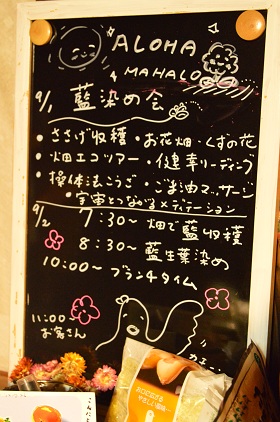 ALOHA
MAHALO
9/1 藍染め会
・ささげ収穫・お花畑・くずの花
・畑エコツアー・健幸リーディング
・操体法こうざ・ごま油マッサージ
・宇宙とつながるメディテーション
9/2 7:30〜 畑で藍収穫
8:30〜 藍生葉染め
10:00〜 ブランチタイム
11:00
お客さん